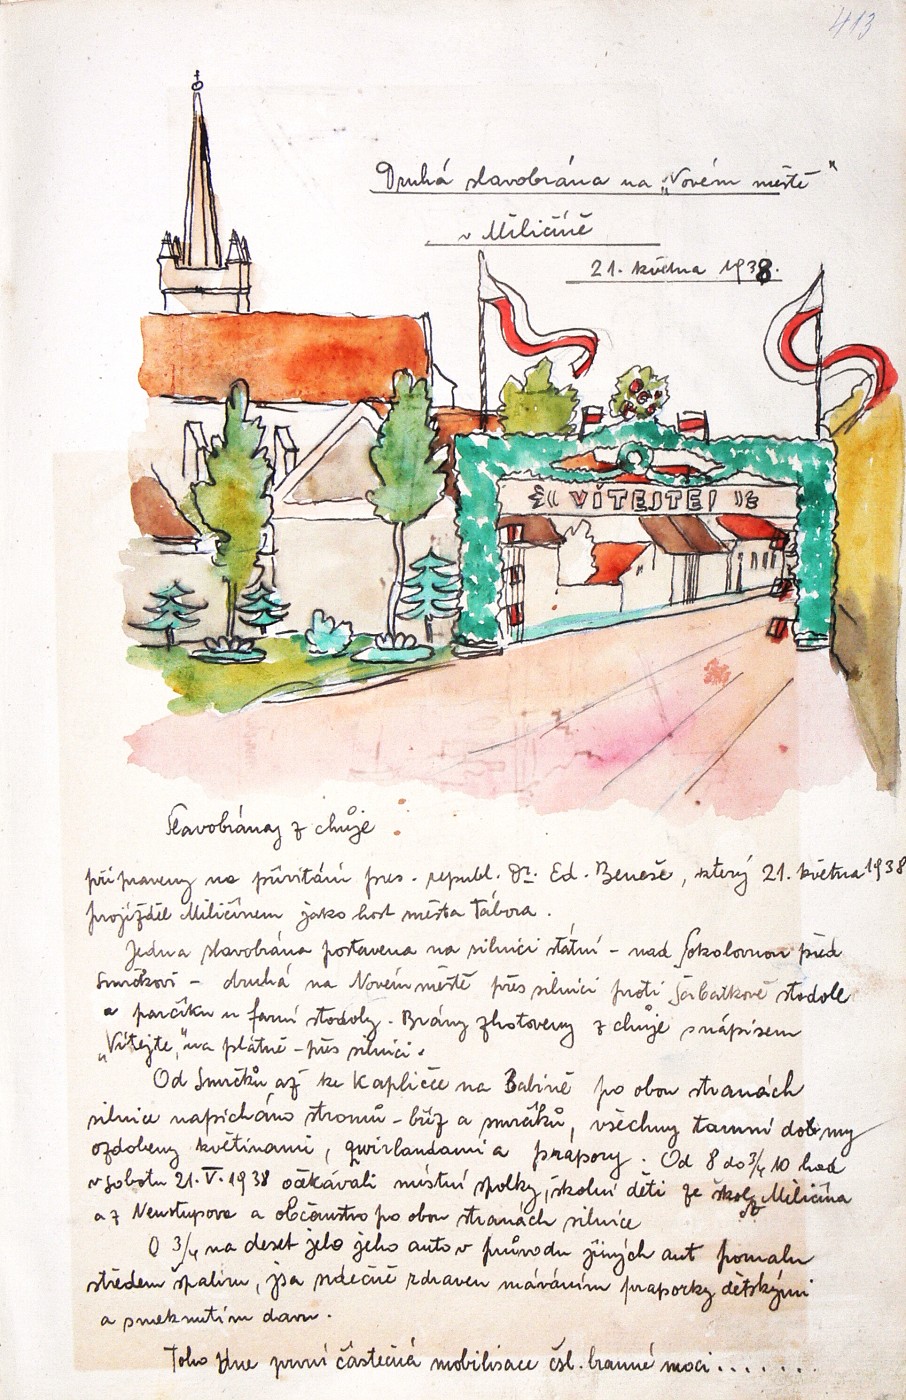 413
Druhá slavobrána na „Novém městě"
v Miličíně
21. května 1938.
VÍTEJTE!
Slavobrány z chvoje
připraveny na přivítání pres. republ. Dr. Ed. Beneše, který 21. května 1938
projížděl Miličínem jako host města Tábora.
Jedna slavobrána postavena na silnici státní – nad Sokolovnou před
Smrčkovi – druhá na Novém městě přes silnici proti Šábatkově stodole
a parčíku u farní stodoly. Brány zhotoveny z chvoje s nápisem
„Vítejte," na plátně – přes silnici.
Od Smrčků až ke kapličce na Babině po obou stranách
silnice napícháno stromů – bříz a smrčků, všechny tamní domy
ozdobeny květinami, gwirlandami a prapory. Od 8 do 3/4 10 hod
v sobotu 21. V. 1938 očekávali místní spolky, školní děti ze škol Miličína
a z Neustupova a občanstvo po obou stranách silnice
O 3/4 na deset jelo jeho auto v průvodu jiných aut pomalu
středem špalíru, jsa srdečně zdraven máváním praporky dětskými
a smeknutím davu.
Toho dne první částečná mobilisace čsl. branné moci.......